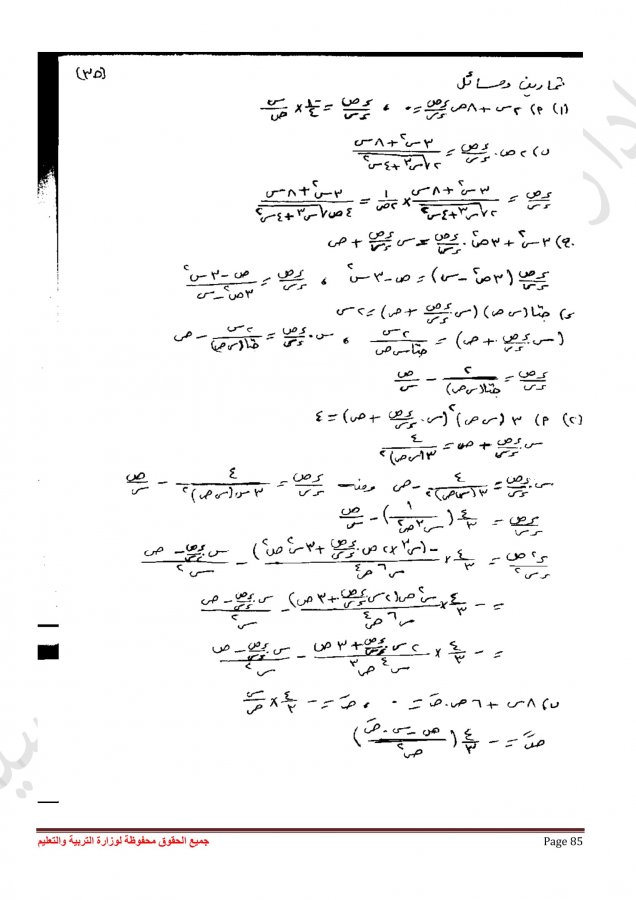 (٣٥)
تمارين ومسائل
(١) ٢) ٢س + ٨ص ءص/ءس = ٠ ، ءص/ءس = -١/٤ × س/ص
ب) ٢ص . ءص/ءس = (٣س٢ + ٨س)/(٢√(س٣ + ٤س٢))
ءص/ءس = (٣س٢ + ٨س)/(٢√(س٣ + ٤س٢)) × ١/٢ص = (٣س٢ + ٨س)/(٤ص√(س٣ + ٤س٢))
جـ) ٣س٢ + ٣ص٢ . ءص/ءس = س ءص/ءس + ص
ءص/ءس (٣ص٢ - س) = ص - ٣س٢ ، ءص/ءس = (ص - ٣س٢)/(٣ص٢ - س)
ء) جتا(س ص) (س ءص/ءس + ص) = ٢س
(س . ءص/ءس + ص) = ٢س/جتا س ص ، س . ءص/ءس = ٢س/جتا(س ص) - ص
ءص/ءس = ٢/جتا(س ص) - ص/س
(٢) ٢) ٣(س ص)٢ (س . ءص/ءس + ص) = ٤
س . ءص/ءس + ص = ٤/٣(س ص)٢
س . ءص/ءس = ٤/٣(س ص)٢ - ص ومنه ءص/ءس = ٤/٣س(س ص)٢ - ص/س
ءص/ءس = ٤/٣ (١/س٣ص٢) - ص/س
ء٢ص/ءس٢ = ٤/٣ × -(س٣ × ٢ص . ءص/ءس + ٣س٢ص٢)/س٦ص٤ - (س . ءص/ءس - ص)/س٢
= -٤/٣ × س٢ص(٢س ءص/ءس + ٣ص)/س٦ص٤ - (س . ءص/ءس - ص)/س٢
= -٤/٣ × (٢س ءص/ءس + ٣ص)/س٤ص٣ - (س . ءص/ءس - ص)/س٢
ب) ٨س + ٦ص . صَ = ٠ ، صَ = -٤/٣ × س/ص
صً = -٤/٣ ((ص - س . صَ)/ص٢)
جميع الحقوق محفوظة لوزارة التربية والتعليم
Page 85